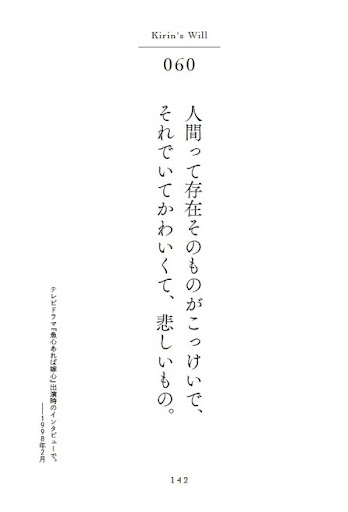 Kirin's Will
060
人間って存在そのものがこっけいで、
それでいてかわいくて、悲しいもの。
テレビドラマ『魚心あれば嫁心』出演時のインタビューで。
——1998年2月
142